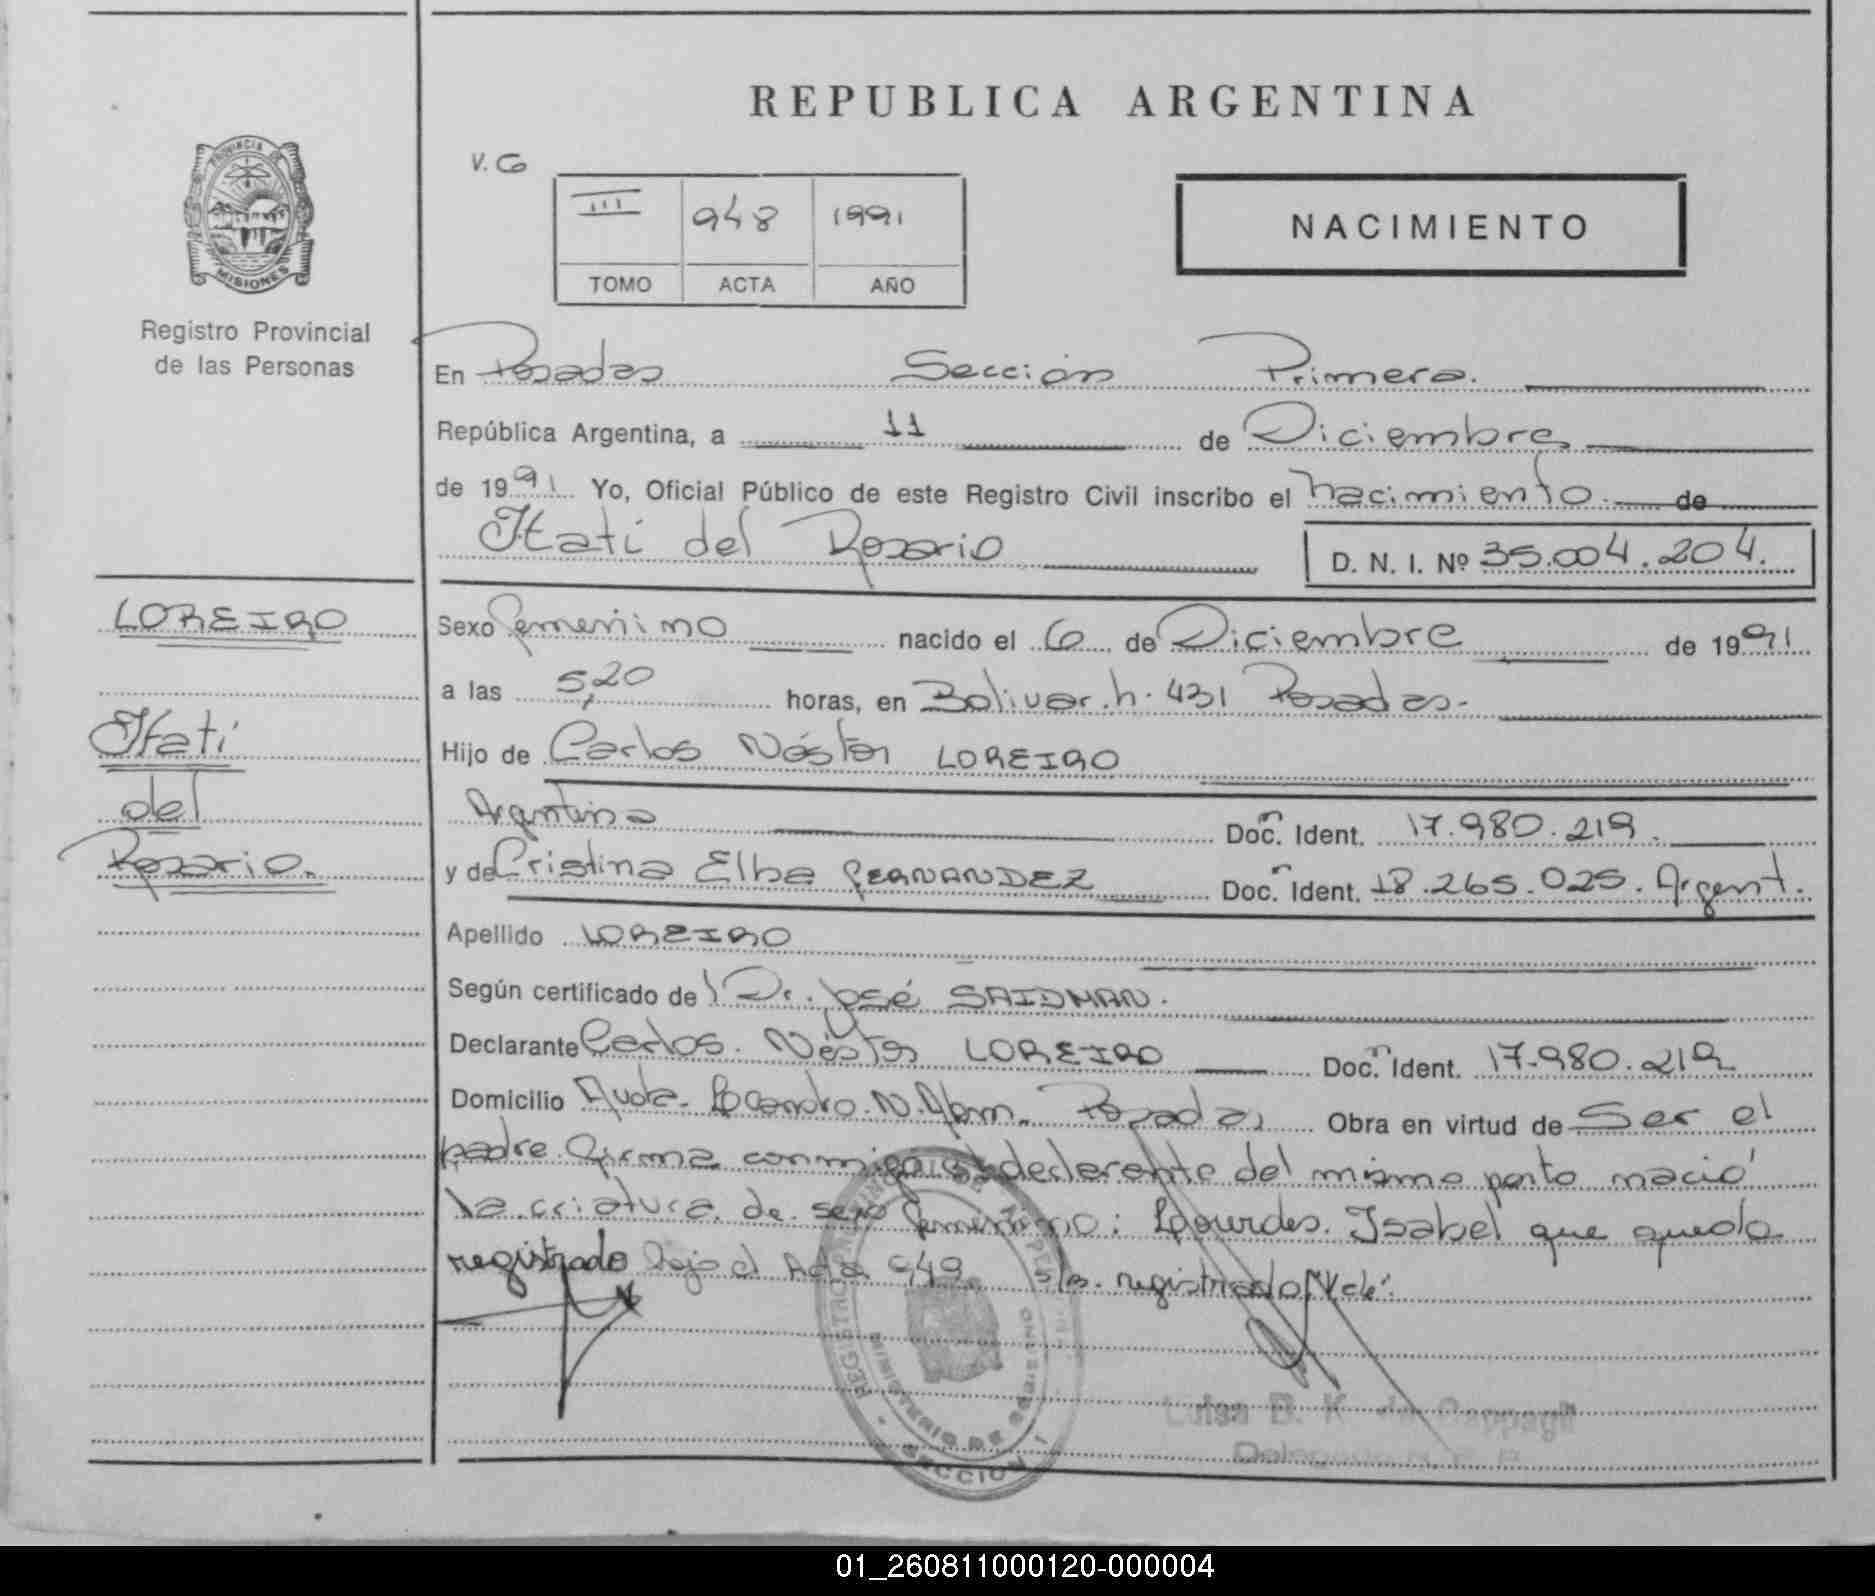 REPUBLICA ARGENTINA
V.G
III 948 1991
TOMO ACTA AÑO
NACIMIENTO
PROVINCIA DE
MISIONES
Registro Provincial
de las Personas
En Posadas Sección Primera.
República Argentina, a 11 de Diciembre
de 1991 Yo, Oficial Público de este Registro Civil inscribo el nacimiento de
Itatí del Rosario
D. N. I. Nº 35.004.204.
LOREIRO
Itatí
del
Rosario.
Sexo femenino nacido el 6 de Diciembre de 1991
a las 5,20 horas, en Bolivar. n. 431 Posadas.
Hijo de Carlos Néstor LOREIRO
Argentino Docn. Ident. 17.980.219.
y de Cristina Elba FERNANDEZ Docn. Ident. 18.265.025. Argent.
Apellido LOREIRO
Según certificado de l Dr. José SAIDMAN.
Declarante Carlos. Néstor LOREIRO Docn. Ident. 17.980.219
Domicilio Avda. Leandro. N. Alem. Posadas Obra en virtud de Ser el
padre firma conmigo el declarante del mismo parto nació
la criatura de sexo femenino: Lourdes Isabel que queda
registrado bajo el Acta 949 s/b. registrado Vale.
REGISTRO PROVINCIAL DE LAS PERS
MINISTERIO DE GOBIERNO
SECCION I
Luisa B. K. de
01_260811000120-000004